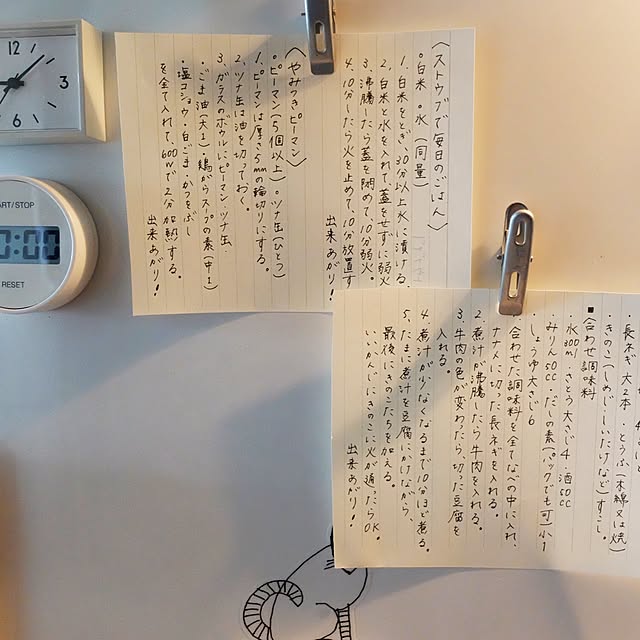 12
3
6
START/STOP
0:00
RESET
〈ストウブで毎日のごはん〉
・白米・水(同量)
1. 白米をとぎ、30分以上水に漬ける。
2. 白米と水を入れて蓋をせずに弱火
3. 沸騰したら蓋を閉めて、10分弱火。
4. 10分したら火を止めて、10分放置す
出来あがり!
〈やみつきピーマン〉
・ピーマン(5個以上)・ツナ缶(ひとつ)
1. ピーマンは厚さ5mmの輪切りにする。
2. ツナ缶は油を切っておく。
3. ガラスのボウルにピーマン・ツナ缶・
・ごま油(大1)・鶏がらスープの素(中1)
・塩コショウ・白ごま・かつおぶし
を全て入れて、600Wで2分加熱する。
出来あがり!
長ネギ大2本・とうふ(木綿又は焼)
・きのこ(しめじ・しいたけなど)すこし。
■合わせ調味料
・水300ml・さとう大さじ4・酒50cc
・みりん50cc・だしの素(パックでも可)小1
・しょうゆ大さじ6
1. 合わせた調味料を全てなべの中に入れ、
ナナメに切った長ネギを入れる。
2. 煮汁が沸騰したら牛肉を入れる。
3. 牛肉の色が変わったら切った豆腐を
入れる。
4. 煮汁が少なくなるまで10分ほど煮る。
5. たまに煮汁を豆腐にかけながら、
最後にきのこたちを加える。
いいかんじにきのこに火が通ったらOK。
出来あがり!